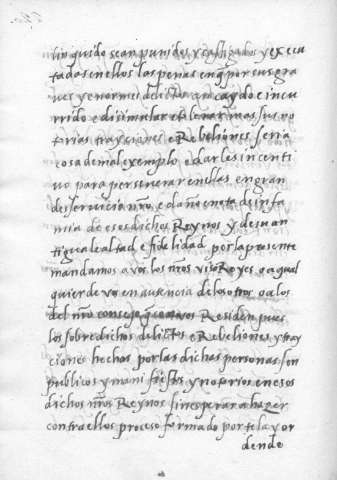 linquido sean punidos y castigados y execu
tadas en ellos las penas en q̃ por sus gra
ues y enormes delictos an caydo e incu
rrido e disimular e tolerar mas sus no
torias trayciones e Rebeliones seria
cosa de mal exemplo e darles incenti
uo para perseuerar en ellas en gran
deseruicio nr̃o e daño e nota de infa
mia de esos dichos Reynos y de su an
tigua lealtad e fidelidad por la presente
mandamos a vos los nr̃os viso Reyes o a qual
quier de vos en ausencia del otro o a los
del nr̃o consejo que con vos Residen pues
los sobredichos delictos e Rebeliones y tray
ciones hechos por las dichas personas son
publicos y manifiestos y notorios en esos
dichos nr̃os Reynos sin esperar a hazer
contra ellos proceso formado por tela y or
dende